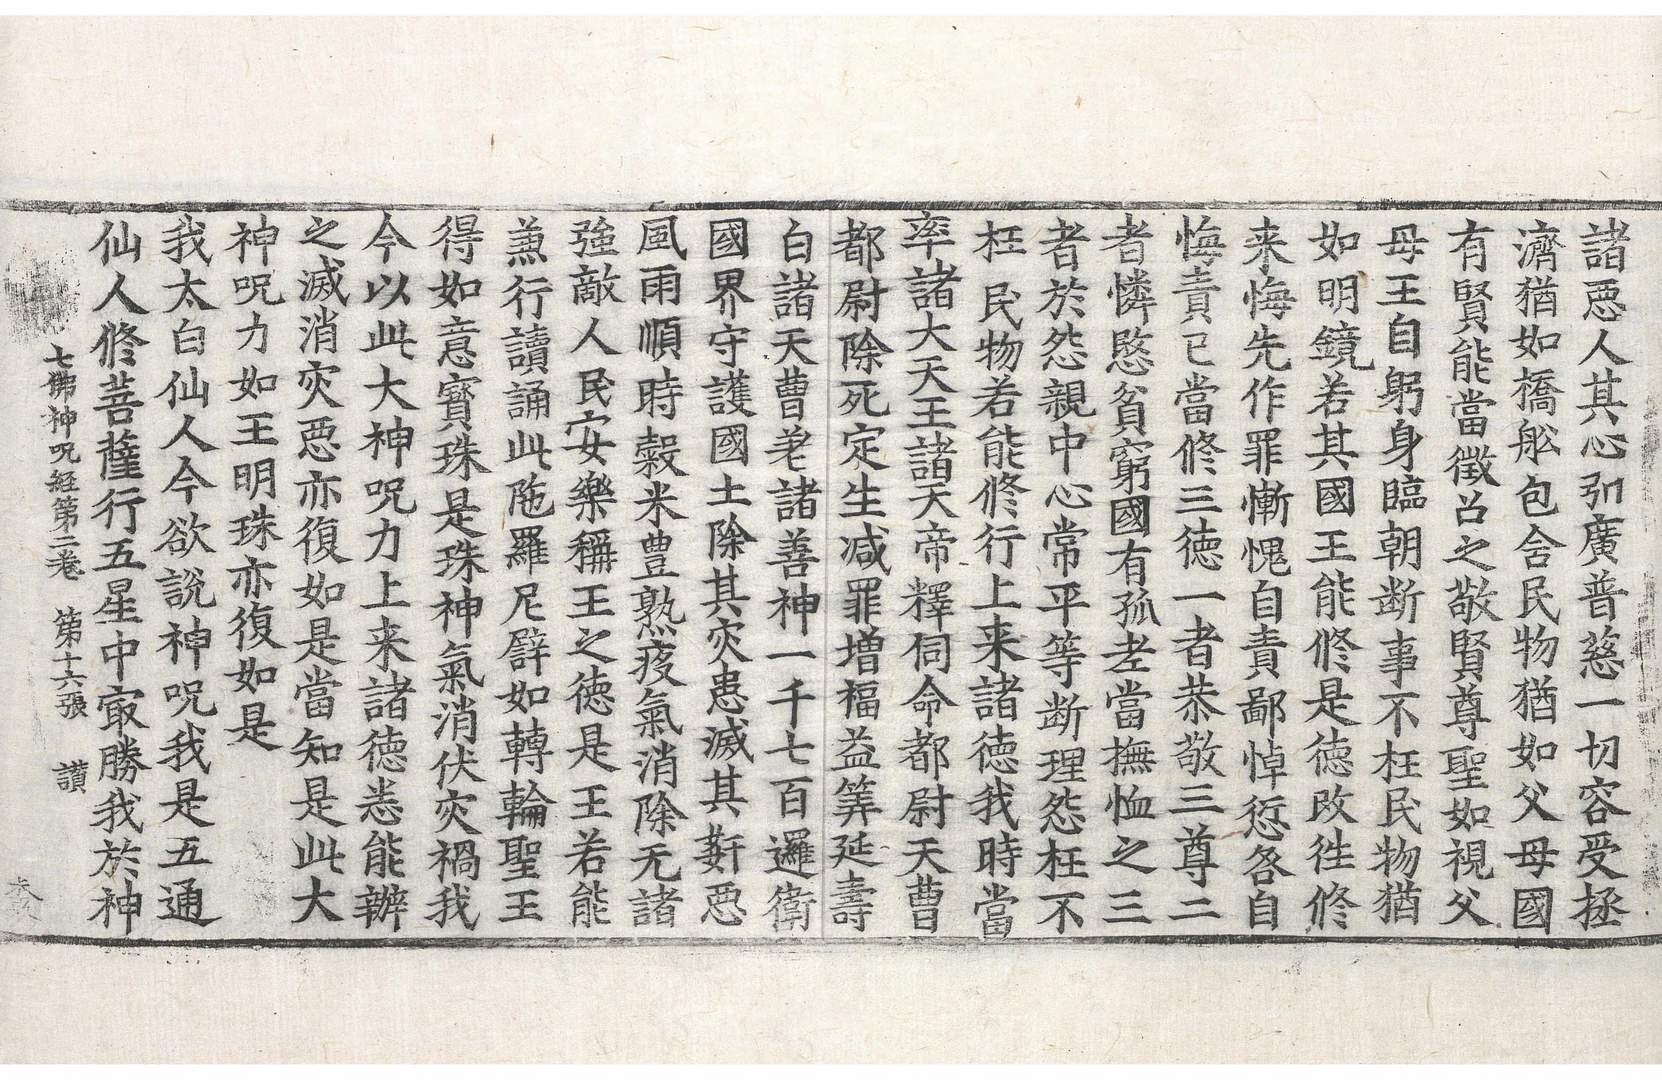 諸惡人其心弘廣普慈一切容受拯
濟猶如橋舩包含民物猶如父母國
有賢能當徵召之敬賢尊聖如視父
母王自躬身臨朝断事不枉民物猶
如明鏡若其國王能修是徳改徃修
来悔先作罪慚愧自責鄙悼愆咎自
悔責已當修三徳一者恭敬三尊二
者憐愍貧窮國有孤老當撫恤之三
者於怨親中心常平等断理怨枉不
枉民物若能修行上来諸徳我時當
率諸大天王諸大帝釋伺命都尉天曹
都尉除死定生减罪増福益筭延壽
白諸天曹差諸善神一千七百邏衛
國界守護國土除其灾患滅其姧惡
風雨順時穀米豊熟疫氣消除无諸
強敵人民安樂稱王之徳是王若能
兼行讀誦此陁羅尼譬如轉輪聖王
得如意寳珠是珠神氣消伏灾禍我
今以此大神呪力上来諸徳悉能辦
之滅消灾惡亦復如是當知是此大
神呪力如王明珠亦復如是
我太白仙人今欲說神呪我是五通
仙人修菩薩行五星中㝡勝我於神
七佛神呪経第二卷 第十六張 讃